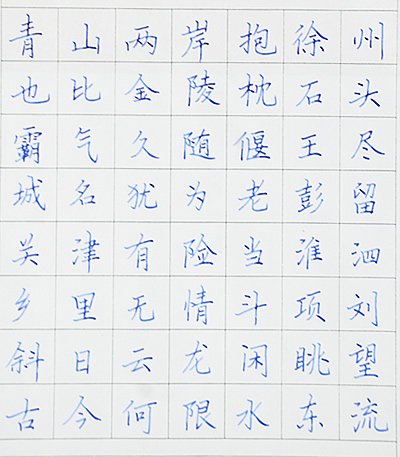 青山两岸抱徐州
也比金陵枕石头
霸气久随偃王尽
城名犹为老彭留
关津有险当淮泗
乡里无情斗项刘
斜日云龙闲眺望
古今何限水东流